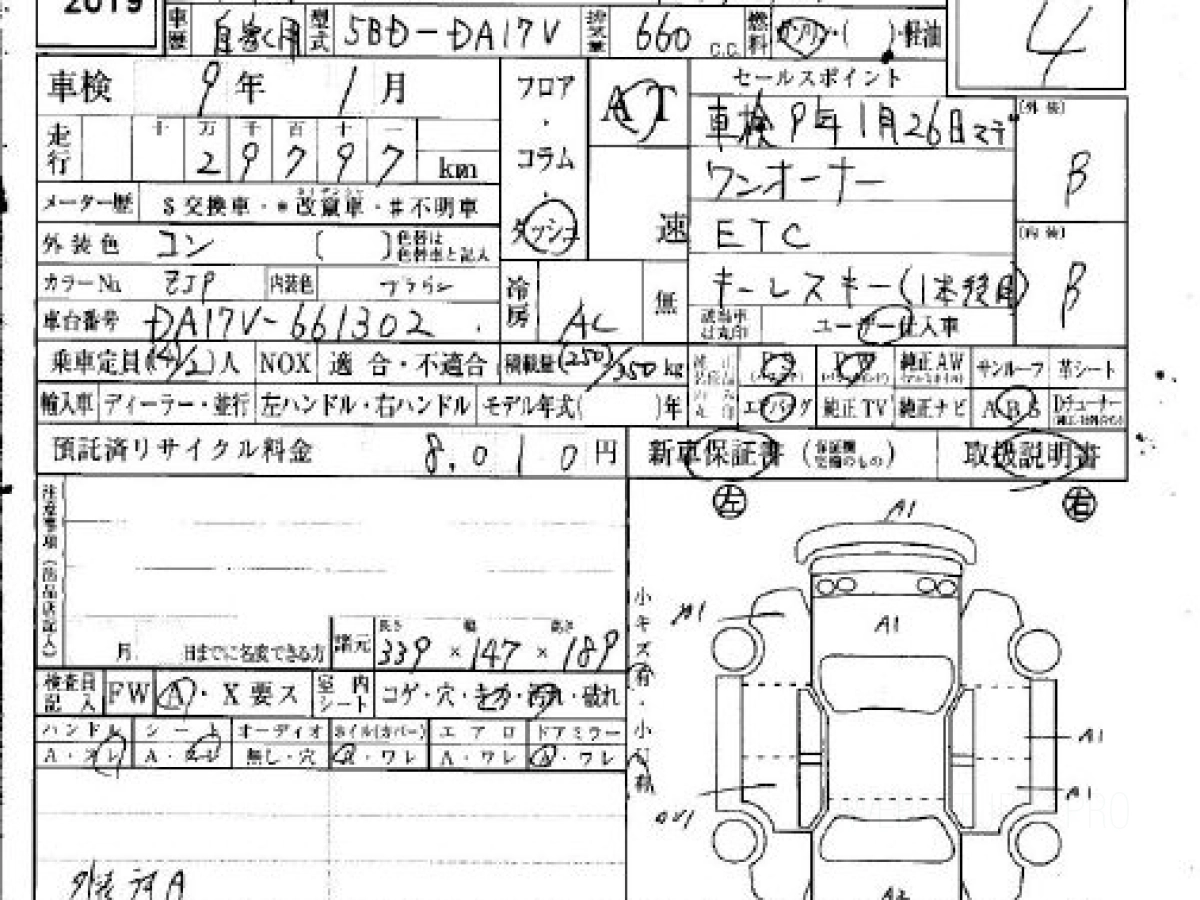 2019
車歴 自家用 型式 5BD-DA17V 排気量 660 C.C. 燃料 ガソリン・( )・軽油
4
車検 9年 1月
フロア・コラム・ダッシュ
AT
速
セールスポイント
車検9年1月26日マデ
ワンオーナー
ETC
キーレスキー(1本使用)
[外装] B
[内装] B
走行 十万千百十一
29797 km
メーター歴 $交換車・*改竄車・#不明車
外装色 コン ( ) 色替は色替車と記入
カラーNo. ZJP 内装色
車台番号 DA17V-661302
冷房 AC 無
該当車は丸印 ユーザー仕入車
乗車定員(4)/2人 NOX 適合・不適合 積載量(250)/350kg
純正AW サンルーフ 革シート
輸入車 ディーラー・並行 左ハンドル・右ハンドル モデル年式( )年
エアバッグ 純正TV 純正ナビ ABS Dチューナー
預託済リサイクル料金 8,010円
新車保証書 (保証欄完備のもの) 取扱説明書
注意事項(出品店記入)
左 右
A1
A1
A1
月 日までに名変できる方
諸元 長さ 339 × 幅 147 × 高さ 189
検査員記入 FW A・X要ス
室内シート コゲ・穴・キズ・汚れ・破れ
ハンドル シート オーディオ ホイル(カバー) エアロ ドアミラー
A・スレ A・スレ 無し・穴 A・ワレ A・ワレ A・ワレ
小キズ有・小凹有
A1
A1